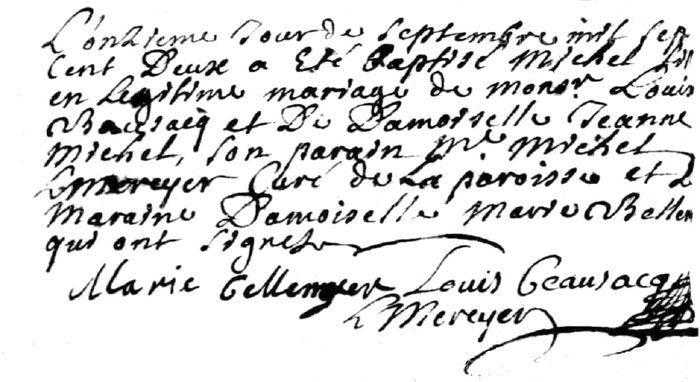 L'onzieme Jour de Septembre mil sep
Cent Deux a Eté Baptisé Michel
en Legitime mariage de monsr Louis
Baussacq et De Damoiselle Jeanne
Michel, son parain Mre Michel
Lemereyer Curé de La paroisse et
Maraine Damoiselle Marie Bellem
qui ont Signez
Marie Louis Beausacq
LeMereyer